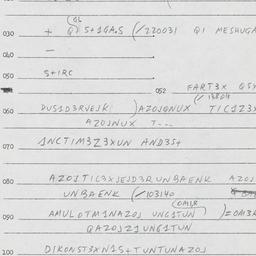 GL
030 + Q) S+1GA.S (/220031 QI MESHUGA
040 —
050 S+IRC
052 FART3X QSY
060 DUS1D3RVEJK) )AZOJQNUX (/13804 TIC1Z3X
AZOJNUX T---
070 1NCTIM3Z3XUN AND3S+
080 AZOJTIL3XJEJD3RUNBAENK AZOJ
UNBAENK (/103140
090 AMULOTM1NAZOJ UNG1TUN (OMIR )=OMI3R
QAZOJZ1UNG1TUN
100 DIKONST3XN1S+TUNTUNAZOJ